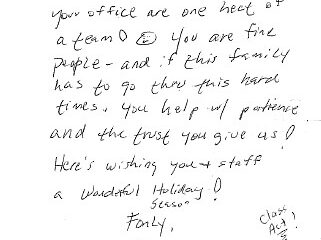 your office are one heck of
a team! ☺ You are fine
people - and if this family
has to go thru this hard
times. You help w/ patience
and the trust you give us!
Here's wishing you + staff
a Wonderful Holiday!
Season
Fondly,
Class
Act!